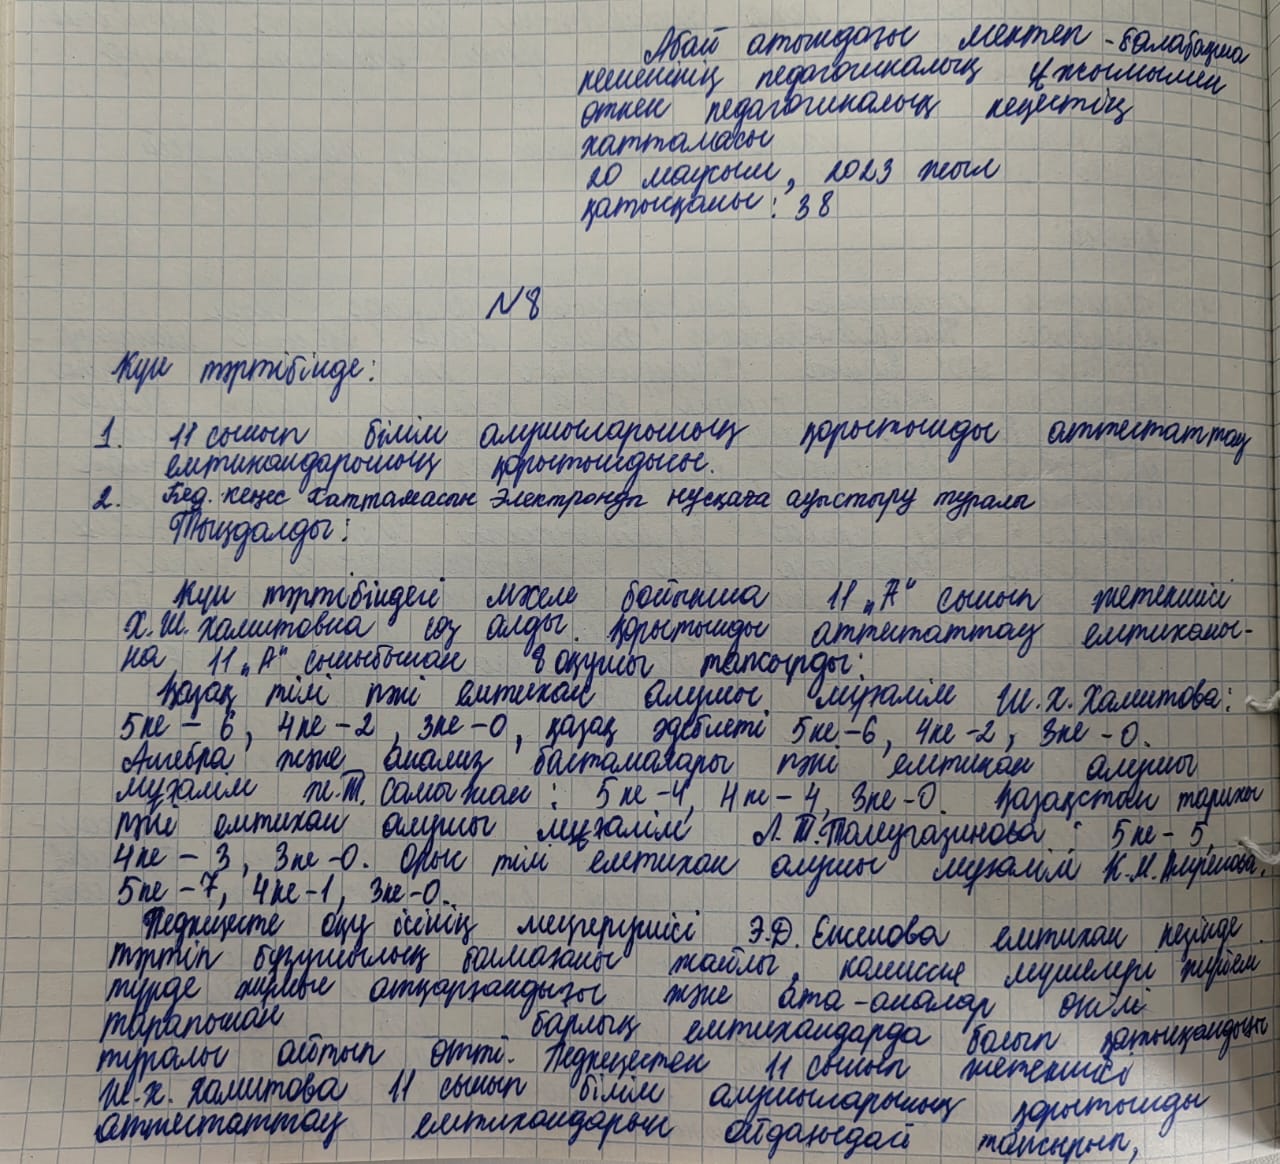 Абай атындағы мектеп-балабақша
кешенінің педагогикалық ұжымымен
өткен педагогикалық кеңестің
хаттамасы
20 маусым, 2023 жыл
қатысқаны: 38
№8
Күн тәртібінде:
1. 11 сынып білім алушыларының қорытынды аттестаттау
емтихандарының қорытындысы.
2. Пед. кеңес хаттамасын электронды нұсқаға ауыстыру туралы
Тыңдалды:
Күн тәртібіндегі мәселе бойынша 11 „А" сынып жетекшісі
Х.Ш. Хамитовна сөз алды. Қорытынды аттестаттау емтиханы-
на 11 „А" сыныбынан 8 оқушы тапсырды:
Қазақ тілі пәні емтихан алушы мұғалім Ш.Х. Хамитова:
5ке – 6, 4ке – 2, 3ке – 0, қазақ әдебиеті 5ке – 6, 4ке – 2, 3ке – 0.
Алгебра және анализ бастамалары пәні емтихан алушы
мұғалім Ж.Т. Самыжан: 5ке – 4, 4ке – 4, 3ке – 0. Қазақстан тарихы
пәні емтихан алушы мұғалім Л.Т. : 5ке – 5,
4ке – 3, 3ке – 0. Орыс тілі емтихан алушы мұғалім К.М.
5ке – 7, 4ке – 1, 3ке – 0.
Педкеңесте оқу ісінің меңгерушісі Э.Д. Енсепова емтихан кезінде
тәртіп бұзушылық болмағаны жайлы, комиссия мүшелері жүйем
түрде жұмыс атқарғандығы және ата-аналар өкілі
тарапынан барлық емтихандарда болып қатысқандығы
туралы айтып өтті. Педкеңестен 11 сынып жетекшісі
Ш.Х. Хамитова 11 сынып білім алушыларының қорытынды
аттестаттау емтихандарын ойдағыдай тапсырып,